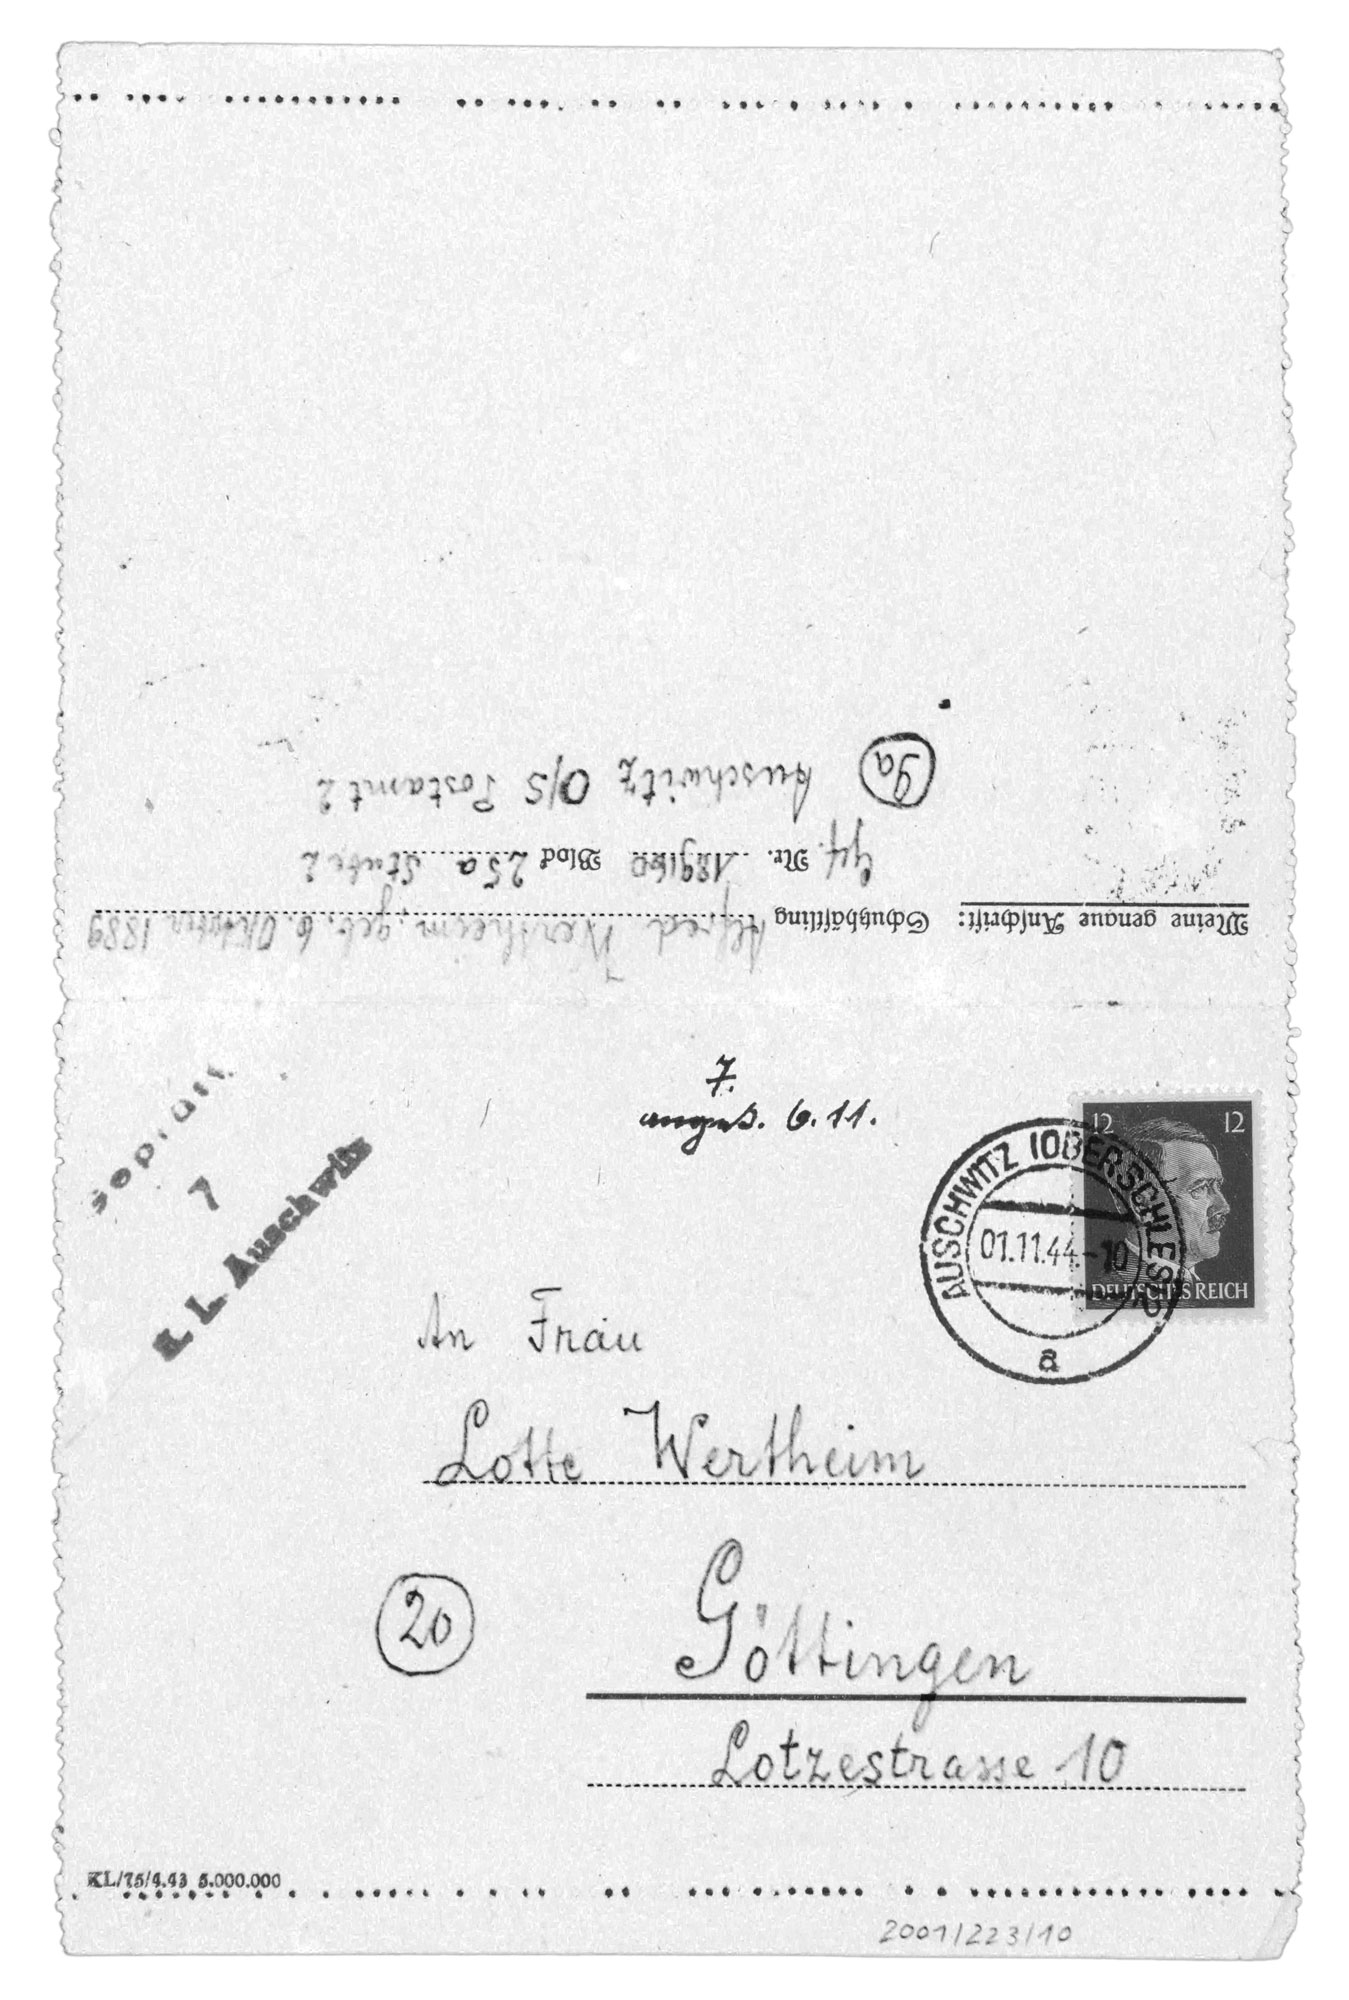 Meine genaue Anschrift:
Schutzhäftling Alfred Wertheim, geb. 6. Oktober 1889
Gef. Nr. 189160 Block 25a Stube 2
9a Auschwitz O/S Postamt 2
7.
6.11.
7
K. L. Auschwitz
12 12
DEUTSCHES REICH
AUSCHWITZ (OBERSCHLES) 2
01.11.44.-10
a
An Frau
Lotte Wertheim
20
Göttingen
Lotzestrasse 10
KL/75/4.43 5.000.000
2001/223/10